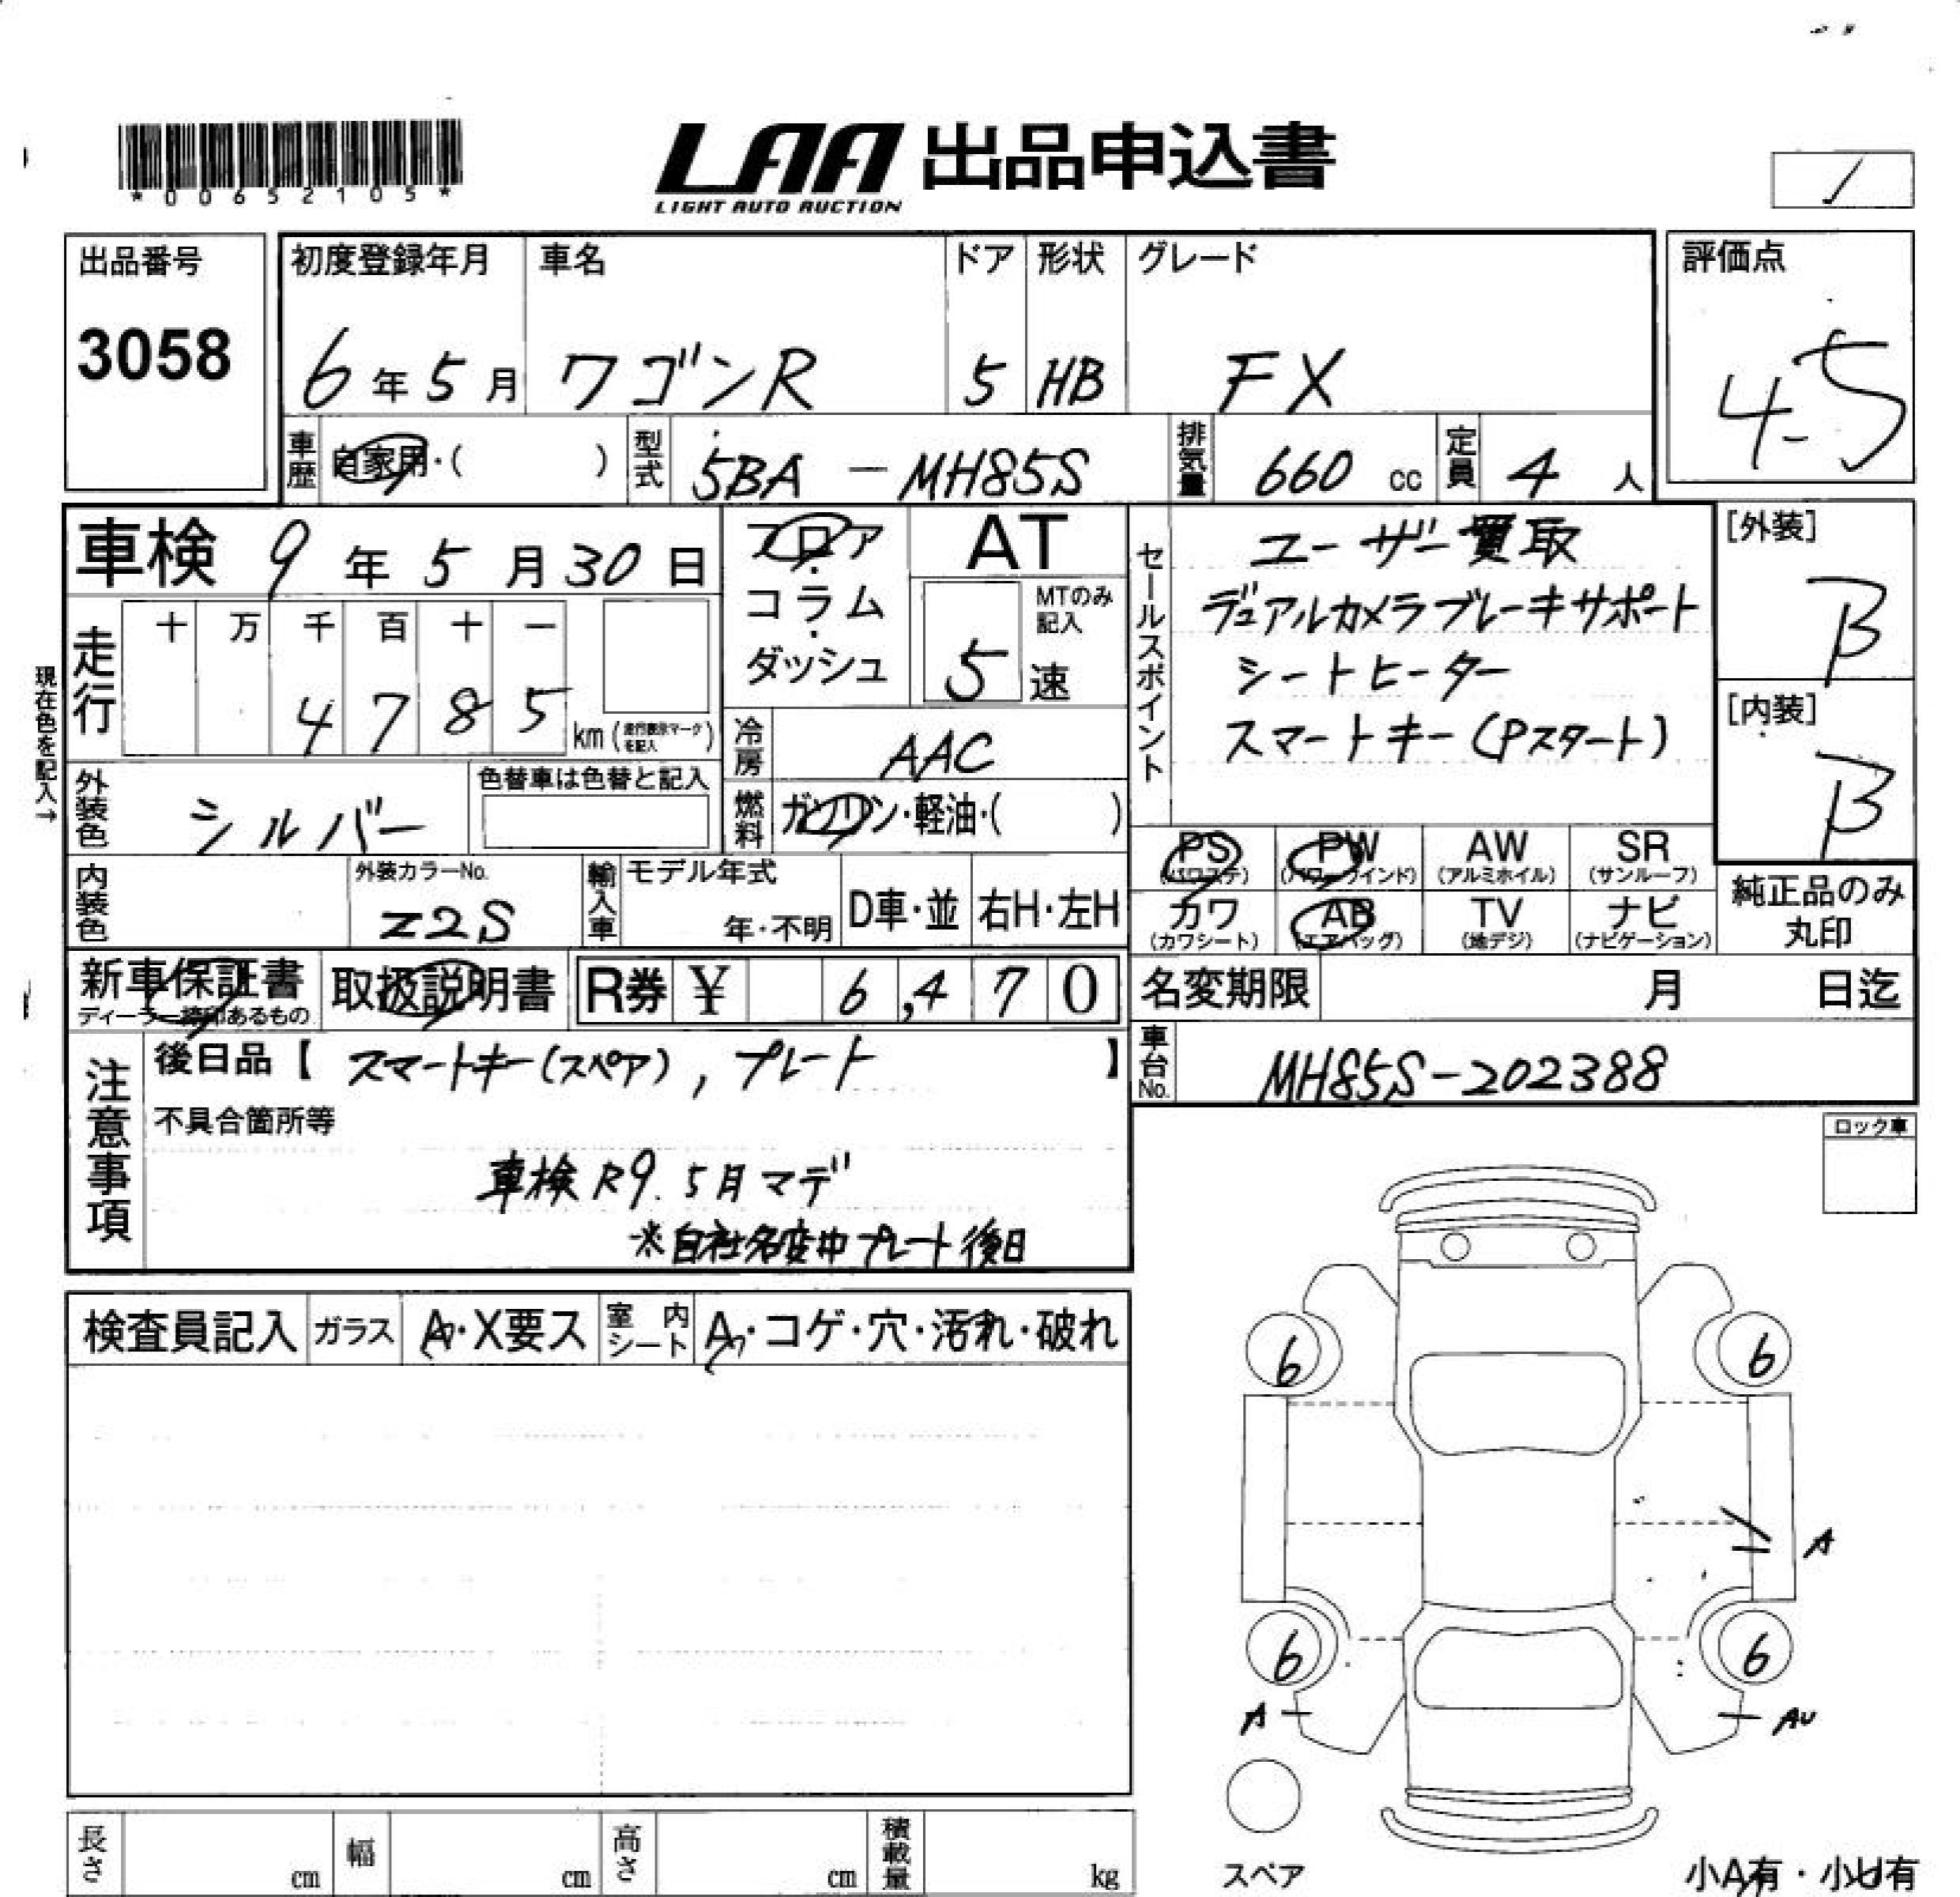 *00652105*
LAA 出品申込書
LIGHT AUTO AUCTION
1
出品番号
3058
初度登録年月 車名 ドア 形状 グレード
6年5月 ワゴンR 5 HB FX
評価点
4.5
車歴 自家用・( ) 型式 5BA-MH85S 排気量 660 cc 定員 4 人
車検 9年5月30日
フロア・コラム・ダッシュ
AT
MTのみ記入
5 速
走行
十 万 千 百 十 一
4 7 8 5 km (走行表示マークを記入)
現在色を記入→
冷房 AAC
外装色 シルバー
色替車は色替と記入
燃料 ガソリン・軽油・( )
内装色
外装カラーNo.
Z2S
輸入車 モデル年式
年・不明 D車・並 右H・左H
セールスポイント
ユーザー買取
デュアルカメラブレーキサポート
シートヒーター
スマートキー(Pスタート)
[外装]
B
[内装]
B
PS PW AW SR
(パワステ) (パワーウインド) (アルミホイル) (サンルーフ)
カワ AB TV ナビ
(カワシート) (エアバッグ) (地デジ) (ナビゲーション)
純正品のみ
丸印
新車保証書
ディーラー捺印あるもの
取扱説明書
R券 ¥ 6,470
名変期限 月 日迄
車台No. MH85S-202388
注意事項
後日品【 スマートキー(スペア), プレート 】
不具合箇所等
車検R9.5月マデ
※自社名変中プレート後日
ロック車
検査員記入 ガラス A・X要ス 室内シート A・コゲ・穴・汚れ・破れ
6 6
A
6 6
A AU
スペア
小A有・小U有
長さ cm 幅 cm 高さ cm 積載量 kg